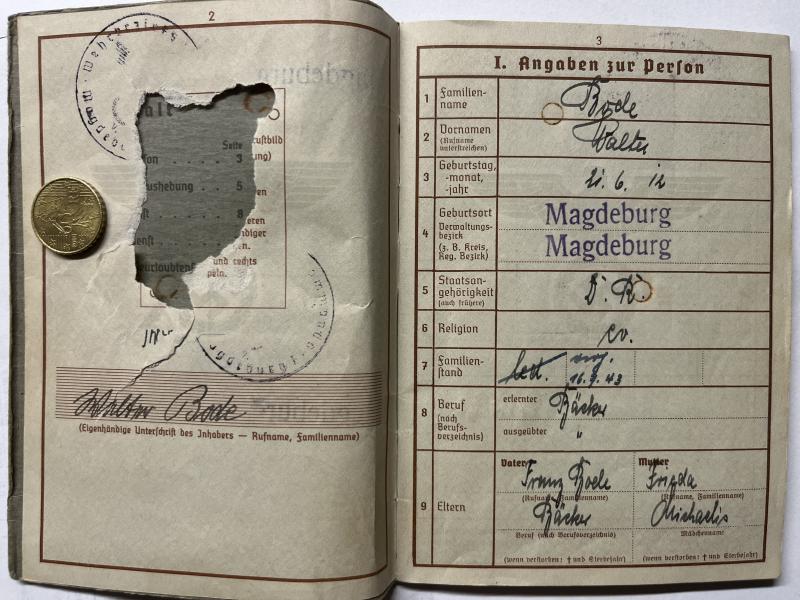 2
Seite
3
ushebung . . . 5
8
und rechts
Walter Bode
(Eigenhändige Unterschrift des Inhabers — Rufname, Familienname)
3
I. Angaben zur Person
1 Familien-
name
Bode
2 Vornamen
(Rufname
unterstreichen)
Walter
3 Geburtstag,
-monat,
-jahr
21. 6. 12
4 Geburtsort
Verwaltungs-
bezirk
(z. B. Kreis,
Reg. Bezirk)
Magdeburg
Magdeburg
5 Staatsan-
gehörigkeit
(auch frühere)
D. R.
6 Religion
ev.
7 Familien-
stand
led.
16. 9. 43
8 Beruf
(nach
Berufs-
verzeichnis)
erlernter Bäcker
ausgeübter "
9 Eltern
Vater
Franz Bode
(Rufname, Familienname)
Bäcker
Beruf (nach Berufsverzeichnis)
(wenn verstorben: † und Sterbejahr)
Mutter
Frieda
(Rufname, Familienname)
Michaelis
Mädchenname
(wenn verstorben: † und Sterbejahr)